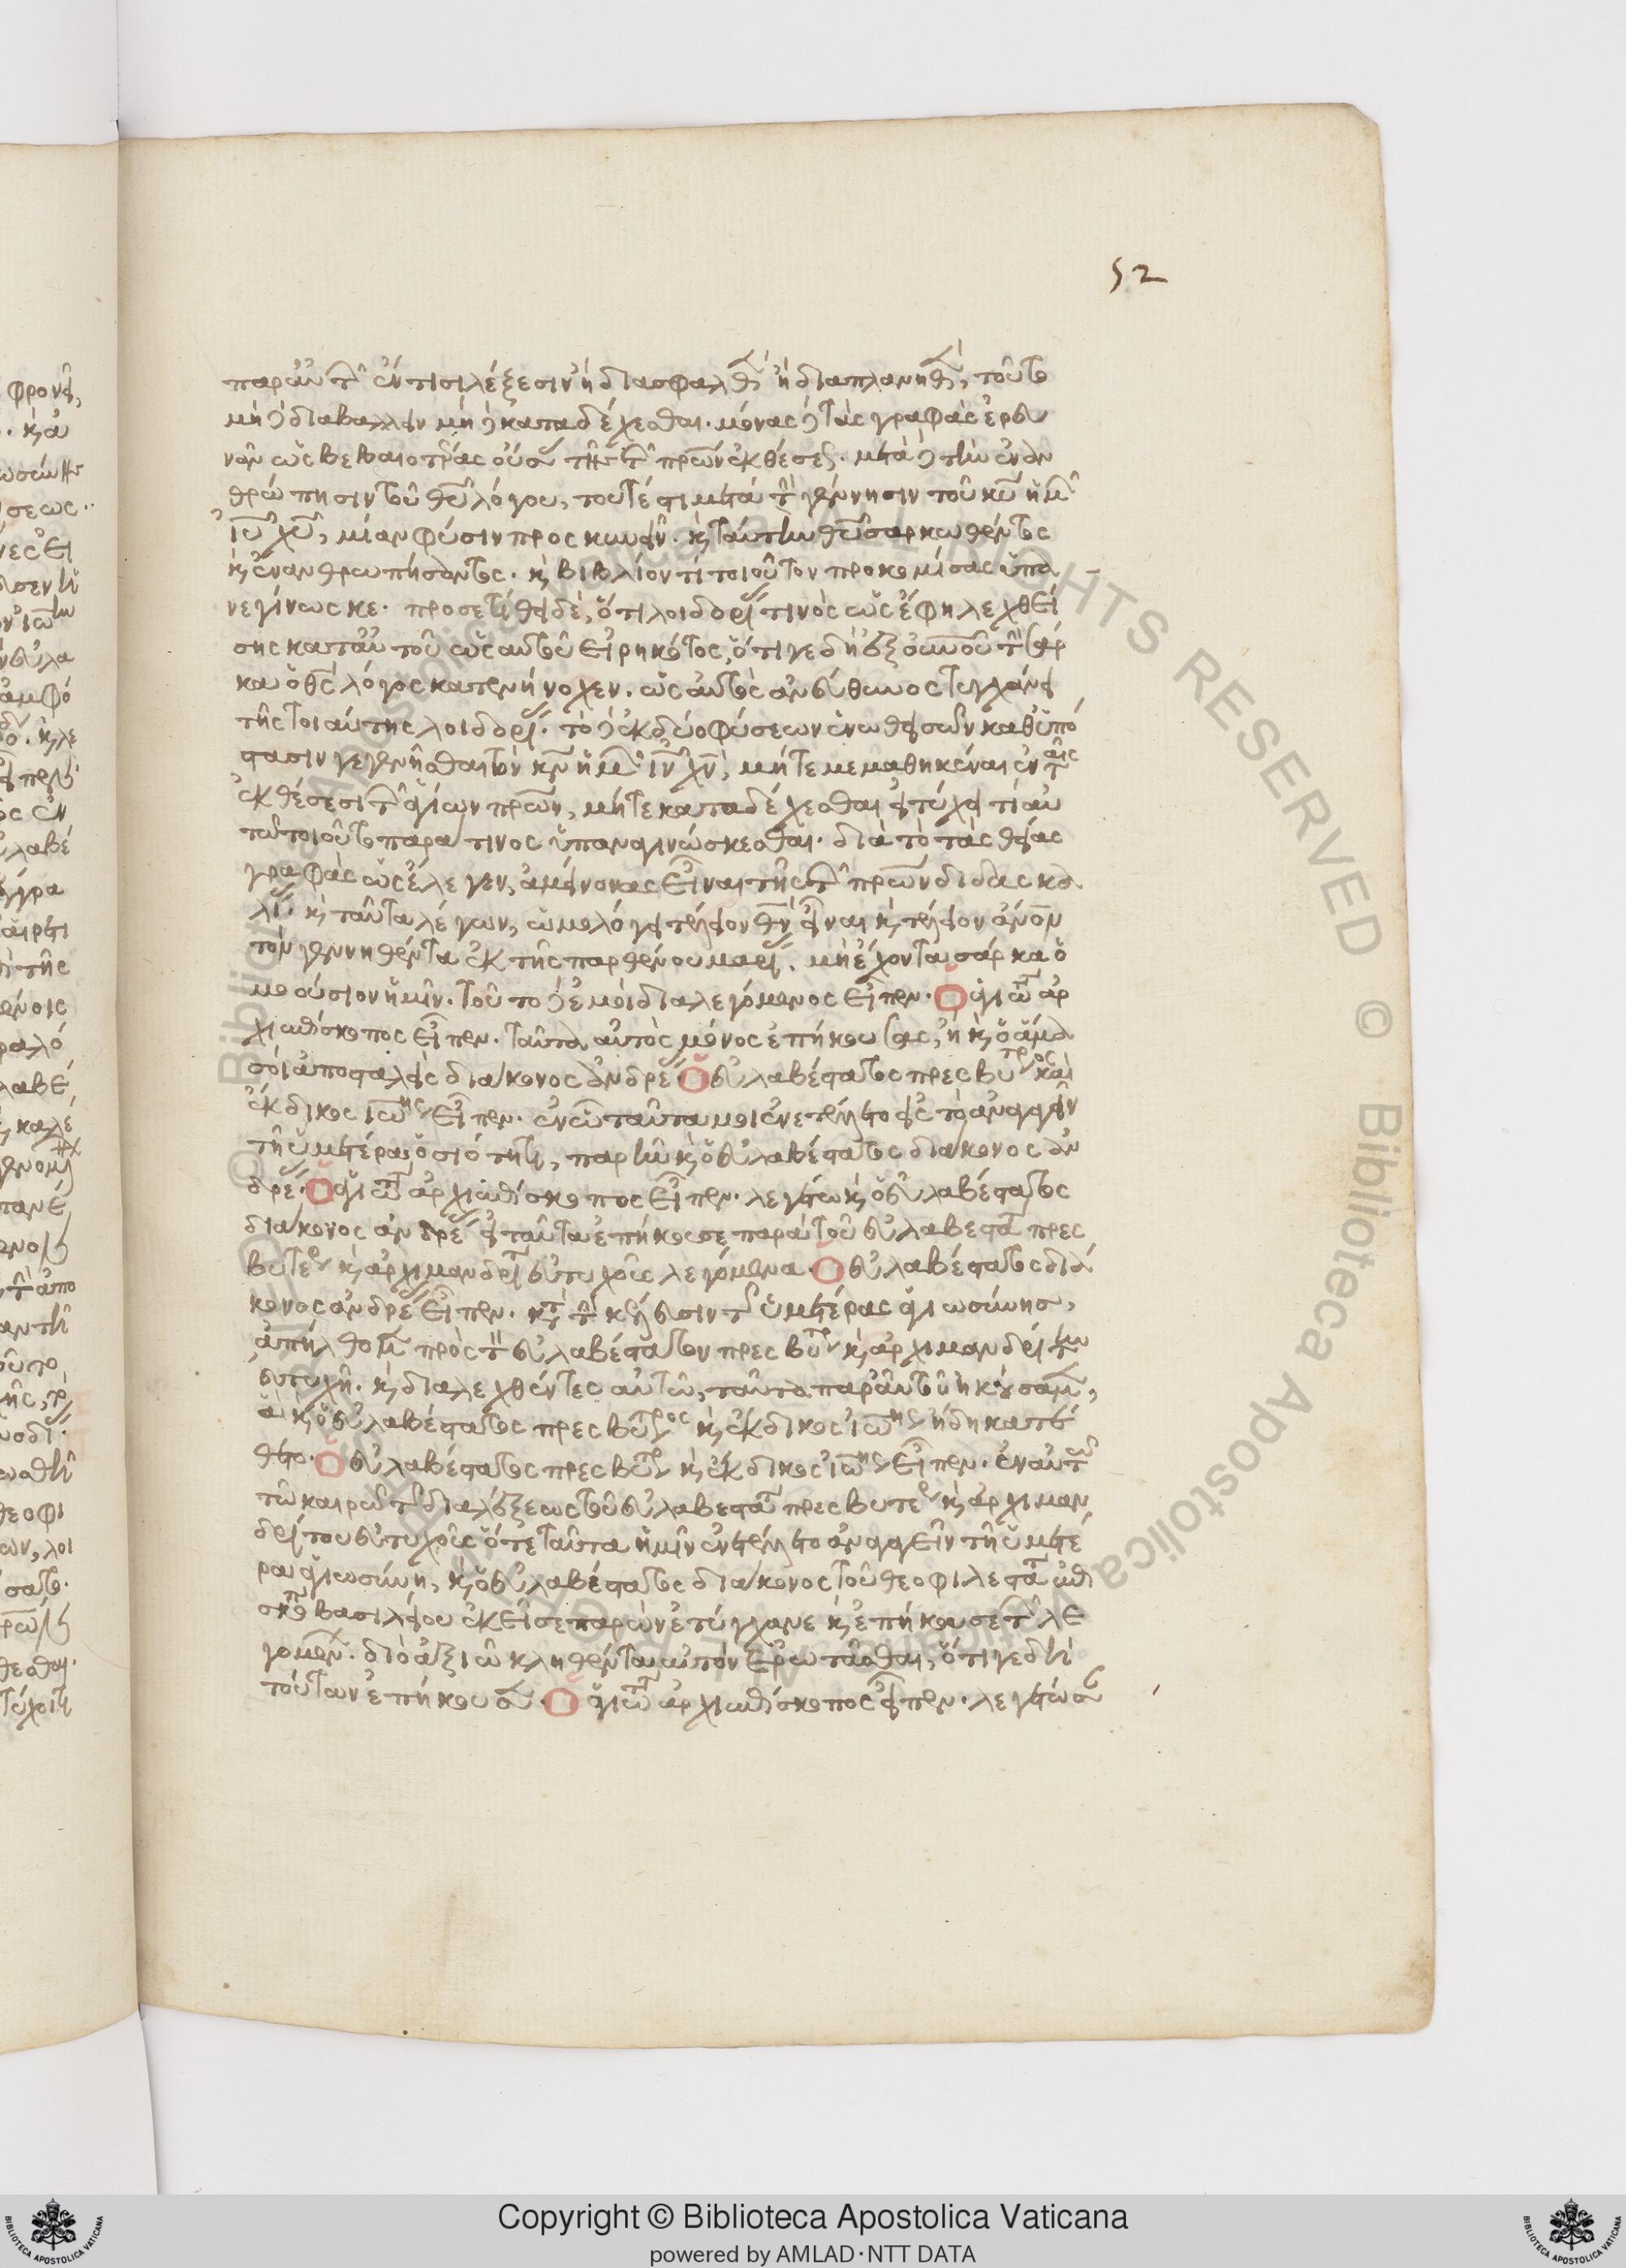 52
παρ' αὐτῶν ἔν τισι λέξεσιν ἢ διασφαλθὲν ἢ διαπλανηθὲν, τοῦτο
μὴ δὲ διαβάλλειν μὴ δὲ καταδέχεσθαι. μόνας δὲ τὰς γραφὰς ἐρευ
νᾶν ὡς βεβαιοτέρας οὔσας τῆς τῶν πρων ἐκθέσεως. μετὰ δὲ τὴν ἐναν
θρώπησιν τοῦ θυ λόγου, τουτέστι μετὰ τὴν γέννησιν τοῦ κυ ἡμῶν
ιυ χυ, μίαν φύσιν προσκυνεῖν. κ ταύτην θυ σαρκωθέντος
κ ἐνανθρωπήσαντος. κ βιβλίον τι τοιοῦτον προκομίσας ὑπα
νεγίνωσκε. προσετίθει δὲ, ὅτι λοιδορίας τινὸς ὡς ἔφη λεχθεί
σης κατ' αὐτοῦ ὡς αὐτοῦ εἰρηκότος, ὅτι γε δὴ ἐξ οὐνοῦ τὴν σάρ
κα ὁ θς λόγος κατενήνοχεν. ὡς αὐτὸς ἀνεύθυνος τυγχάνει
τῆς τοιαύτης λοιδορίας. τὸ δὲ ἐκ δύο φύσεων ἑνωθεισῶν καθ' ὑπό
στασιν γεγενῆσθαι τὸν κν ἡμῶν ιν χν, μήτε μεμαθηκέναι ἐν ταῖς
ἐκθέσεσι τῶν ἁγίων πρων, μήτε καταδέχεσθαι εἰ τύχη τί αὐ
τῷ τοιοῦτο παρά τινος ὑπαναγινώσκεσθαι. διὰ τὸ τὰς θείας
γραφὰς ὡς ἔλεγεν, ἀμείνονας εἶναι τῆς τῶν πρων διδασκα
λίας. κ ταῦτα λέγων, ὡμολόγει τέλειον θν εἶναι κ τέλειον ἄνον
τὸν γεννηθέντα ἐκ τῆς παρθένου μαρίας. μὴ ἔχοντα σάρκα ὁ
μοούσιον ἡμῖν. τοῦτο δέ μοι διαλεγόμενος εἶπεν. Ὁ ἁγιωτ ἀρ
χιεπίσκοπος εἶπεν. ταῦτα αὐτὸς μόνος ἐπήκουσας, ἢ κ ὁ ἅμα
σοι ἀποσταλεὶς διάκονος ἀνδρέας. Ὁ εὐλαβέστατος πρεσβύτερος καὶ
ἔκδικος ιωης εἶπεν. ἐν ᾧ ταῦτά μοι ἐνετέλλετο εἰς τὸ ἀναγαγεῖν
τῇ ὑμετέρᾳ ὁσιότητι, παρῆν κ ὁ εὐλαβέστατος διάκονος ἀν
δρέας. Ὁ ἁγιωτ ἀρχιεπίσκοπος εἶπεν. λεγέτω κ ὁ εὐλαβέστατος
διάκονος ἀνδρέας εἰ ταῦτα ἐπήκουσε παρὰ τοῦ εὐλαβεστατ πρες
βυτερ κ ἀρχιμανδρίτ εὐτυχοῦς λεγόμενα. Ὁ εὐλαβέστατος διά
κονος ἀνδρέας εἶπεν. κατὰ τὴν κέλευσιν τῆς ὑμετέρας ἁγιωσύνης,
ἀπήλθομεν πρὸς τὸν εὐλαβέστατον πρεσβύτερ κ ἀρχιμανδρίτην
εὐτυχῆ. κ διαλεχθέντες αὐτῷ, ταῦτα παρ' αὐτοῦ ἠκούσαμεν,
ἃ κ ὁ εὐλαβέστατος πρεσβύτερος κ ἔκδικος ιωης ἤδη κατέ
θετο. Ὁ εὐλαβέστατος πρεσβύτερ κ ἔκδικος ιωης εἶπεν. ἐν αὐτῷ
τῷ καιρῷ τῆς διαλέξεως τοῦ εὐλαβεστατ πρεσβυτερ κ ἀρχιμαν
δρίτου εὐτυχοῦς ὅτε ταῦτα ἡμῖν ἐνετέλλετο ἀναγαγεῖν τῇ ὑμετέ
ρᾳ ἁγιωσύνῃ, κ ὁ εὐλαβέστατος διάκονος τοῦ θεοφιλεστατ ἐπι
σκόπ βασιλείου ἐκεῖσε παρὼν ἐτύγχανε κ ἐπήκουσε τῶν λε
γομένων. διὸ ἀξιῶ κληθέντα αὐτὸν ἐρωτᾶσθαι, ὅτι γε δὴ
τούτων ἐπήκουσεν. Ὁ ἁγιωτ ἀρχιεπίσκοπος εἶπεν. λεγέτω
Copyright © Biblioteca Apostolica Vaticana
powered by AMLAD·NTT DATA